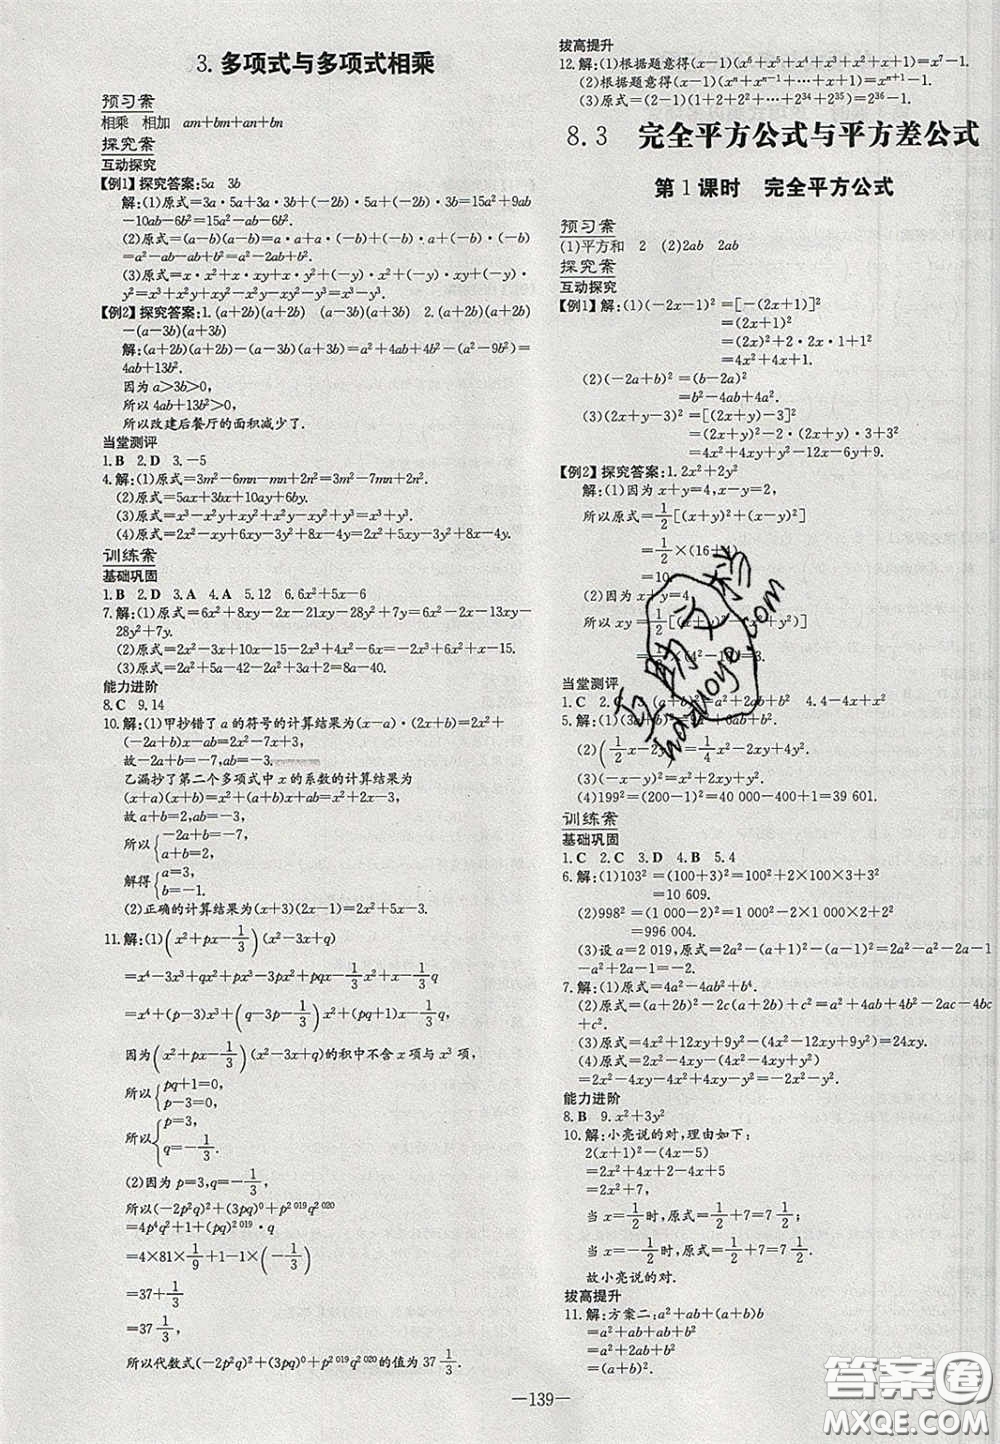 3. 多项式与多项式相乘
预习案
相乘 相加 am+bm+an+bn
探究案
互动探究
【例1】探究答案:5a 3b
解:(1)原式=3a·5a+3a·(+3b)+(-2b)·5a+(-2b)·3b=15a²+9ab
-10ab-6b²=15a²-ab-6b².
(2)原式=(a-b)(a-b)=a·a+a·(-b)+(-b)·a+(-b)·(-b)
=a²-ab-ab+b²=a²-2ab+b².
(3)原式=x·x²+x·xy+x·y²+(-y)·x²+(-y)·xy+(-y)·
y²=x³-y³.
【例2】探究答案:1.(a+2b)(a+2b) (a-3b)(a+3b) 2.(a+2b)(a+2b)
-(a-3b)(a+3b)
解:(a+2b)(a+2b)-(a-3b)(a+3b)=a²+4ab+4b²-(a²-9b²)=
4ab+13b².
因为 a>3b>0,
所以 4ab+13b²>0,
所以改建后餐厅的面积减少了.
当堂测评
1.B 2.D 3.-5
4.解:(1)原式=3m²-6mn-mn+2n²=3m²-7mn+2n².
(2)原式=5ax+3bx+10ay+6by.
(4)原式=2x³-xy+6xy-3y²+8x-4y=2x²+5xy-3y²+8x-4y.
训练案
基础巩固
1.B 2.D 3.A 4.A 5.12 6.6x²+5x-6
7.解:(1)原式=6x²+8xy-2x-21xy-28y²+7y=6x²-2x-13xy-
28y²+7y.
(2)原式=2x³-3x+10x-15-2x²-2x=4x²+6x-15.
(3)原式=2a²+5a-42-2a²+3a+2=8a-40.
能力进阶
8.C 9.14
10.解:(1)甲抄错了 a 的符号的计算结果为(x-a)·(2x+b)=2x²+
(-2a+b)x-ab=2x²-7x+3,
故-2a+b=-7,ab=-3.
乙漏抄了第二个多项式中 x 的系数的计算结果为
(x+a)(x+b)=x²+(a+b)x+ab=x²+2x-3,
故 a+b=2,ab=-3.
所以{-2a+b=-7,
a+b=2,
解得{a=3,
b=-1.
(2)正确的计算结果为(x+3)(2x-1)=2x²+5x-3.
11.解:(1)(x²+px-1/3)(x²-3x+q)
=x⁴-3x³+qx²+px³-3px²+pqx-1/3x²+x-1/3q
=x⁴+(p-3)x³+(q-3p-1/3)x²+(pq+1)x-1/3q,
因为(x²+px-1/3)(x²-3x+q)的积中不含 x 项与 x³ 项,
所以{pq+1=0,
p-3=0,
所以{p=3,
q=-1/3.
(2)因为 p=3,q=-1/3,
所以(-2p²q)²+(3pq)⁰+p²⁰¹⁹q²⁰²⁰
=4p⁴q²+1+(pq)²⁰¹⁹·q
=4×81×1/9+1-1×(-1/3)
=37+1/3
=37 1/3,
所以代数式(-2p²q)²+(3pq)⁰+p²⁰¹⁹q²⁰²⁰的值为37 1/3.
拔高提升
12.解:(1)根据题意得(x-1)(x⁶+x⁵+x⁴+x³+x²+x+1)=x⁷-1.
(2)根据题意得(x-1)(xⁿ+xⁿ⁻¹+…+x+1)=xⁿ⁺¹-1.
(3)原式=(2-1)(1+2+2²+…+2³⁴+2³⁵)=2³⁶-1.
8.3 完全平方公式与平方差公式
第1课时 完全平方公式
预习案
(1)平方和 2 (2)2ab 2ab
探究案
互动探究
【例1】解:(1)(-2x-1)²=[-(2x+1)]²
=(2x+1)²
=(2x)²+2·2x·1+1²
=4x²+4x+1.
(2)(-2a+b)²=(b-2a)²
=b²-4ab+4a².
(3)(2x+y-3)²=[(2x+y)-3]²
=(2x+y)²-2·(2x+y)·3+3²
=4x²+4xy+y²-12x-6y+9.
【例2】探究答案:1.2x²+2y²
解:(1)因为 x+y=4,x-y=2,
所以原式=1/2[(x+y)²+(x-y)²]
=1/2×(16+4)
=10.
(2)因为 x+y=4
所以 xy=1/2[(x+y)²-(x²+y²)]
当堂测评
1.C 2.C 4.4-4x+x²
5.解:(1)(3a+b)²=9a²+6ab+b².
(2)(1/2x-2y)²=1/4x²-2xy+4y².
(3)(-x-y)²=x²+2xy+y².
(4)199²=(200-1)²=40 000-400+1=39 601.
训练案
基础巩固
1.C 2.C 3.D 4.B 5.4
6.解:(1)103²=(100+3)²=100²+2×100×3+3²
=10 609.
(2)998²=(1000-2)²=1000²-2×1000×2+2²
=996 004.
(3)设 a=2 019,原式=2a²-(a+1)²-(a-1)²=2a²-a²-2a-1-
a²+2a-1=-2.
7.解:(1)原式=4a²-4ab²+b⁴.
(2)原式=(a+2b)²-2c(a+2b)+c²=a²+4ab+4b²-2ac-4bc
+c².
(3)原式=4x²+12xy+9y²-(4x²-12xy+9y²)=24xy.
(4)原式=2(x²-2xy+y²)-(4x²+4xy+y²)
=2x²-4xy+2y²-4x²-4xy-y²=-2x²-8xy+y².
能力进阶
8.B 9.x²+3y²
10.解:小亮说的对,理由如下:
2(x+1)²-(4x-5)
=2x²+4x+2-4x+5
=2x²+7,
当 x=1/2时,原式=1/2+7=7 1/2;
当 x=-1/2时,原式=1/2+7=7 1/2.
故小亮说的对.
拔高提升
11.解:方案二:a²+ab+(a+b)b
=a²+ab+ab+b²
=a²+2ab+b²
=(a+b)².
—139—
互助文档
huzuoye.com
答案圈
MXQE.COM